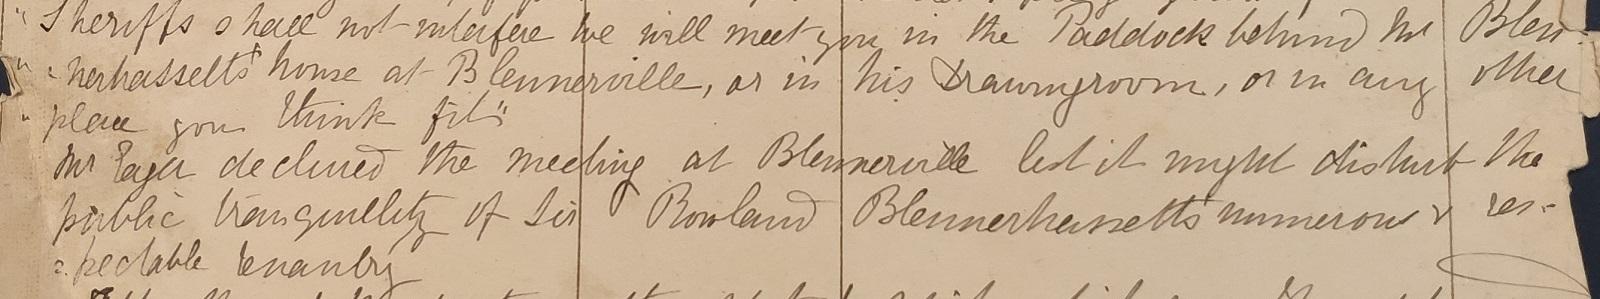 "Sheriffs shall not interfere we will meet you in the Paddock behind Mr Blen-
" -nerhassett's house at Blennerville, or in his Drawingroom, or in any other
" place you think fit"
Mr Eager declined the meeting at Blennerville lest it might disturb the
public tranquillity of Sir Rowland Blennerhassetts numerous & res-
=pectable tenantry